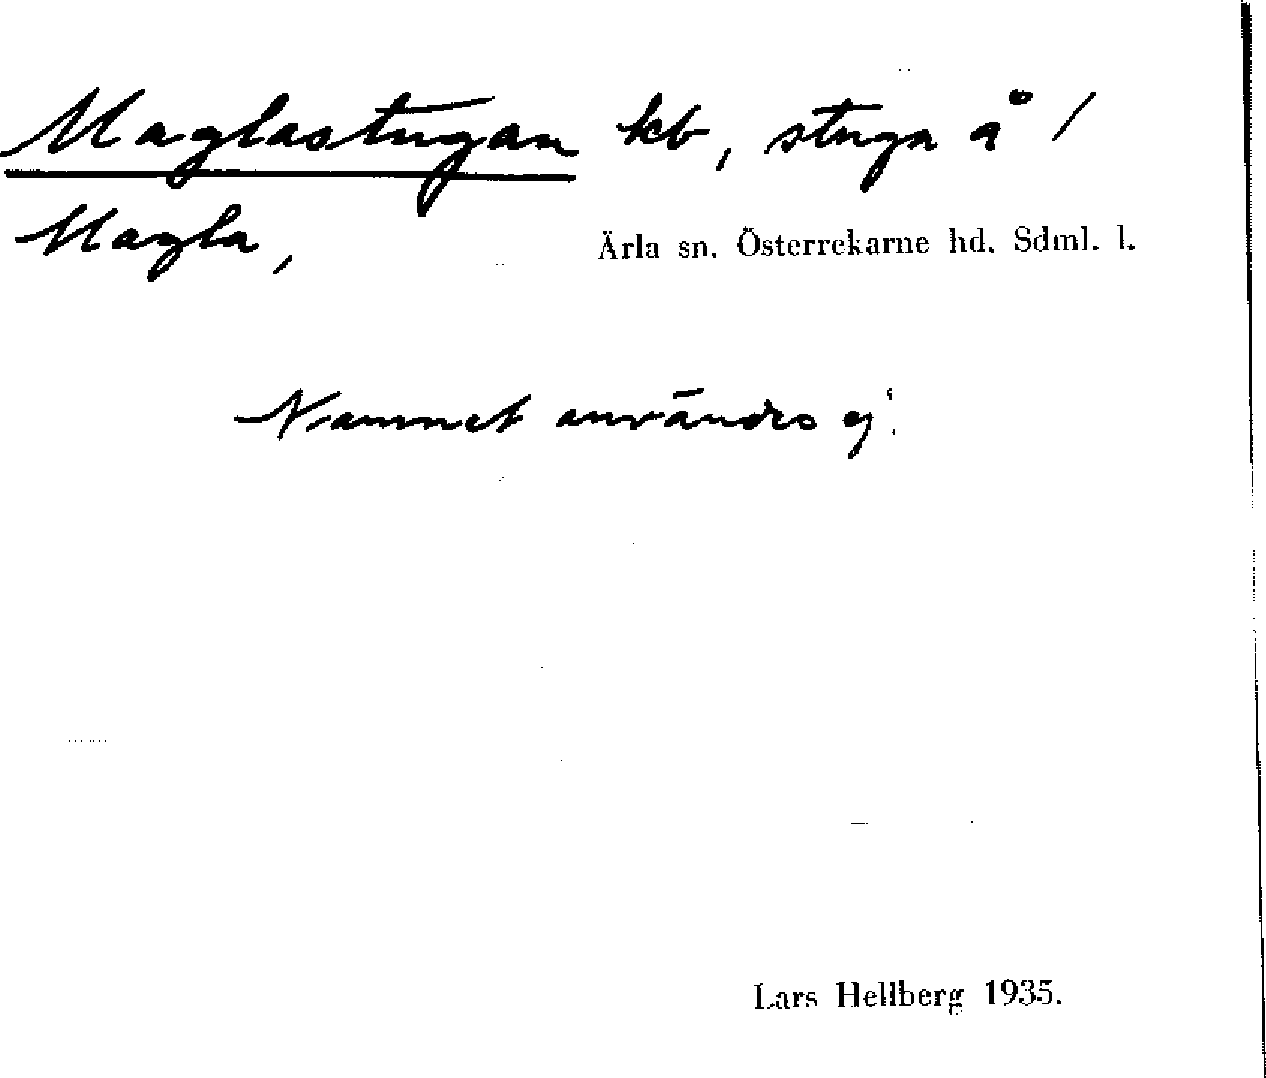 Maglastugan kb, stuga å /
Magla,
Ärla sn. Österrekarne hd. Sdml. l.
Namnet användes ej.
Lars Hellberg 1935.